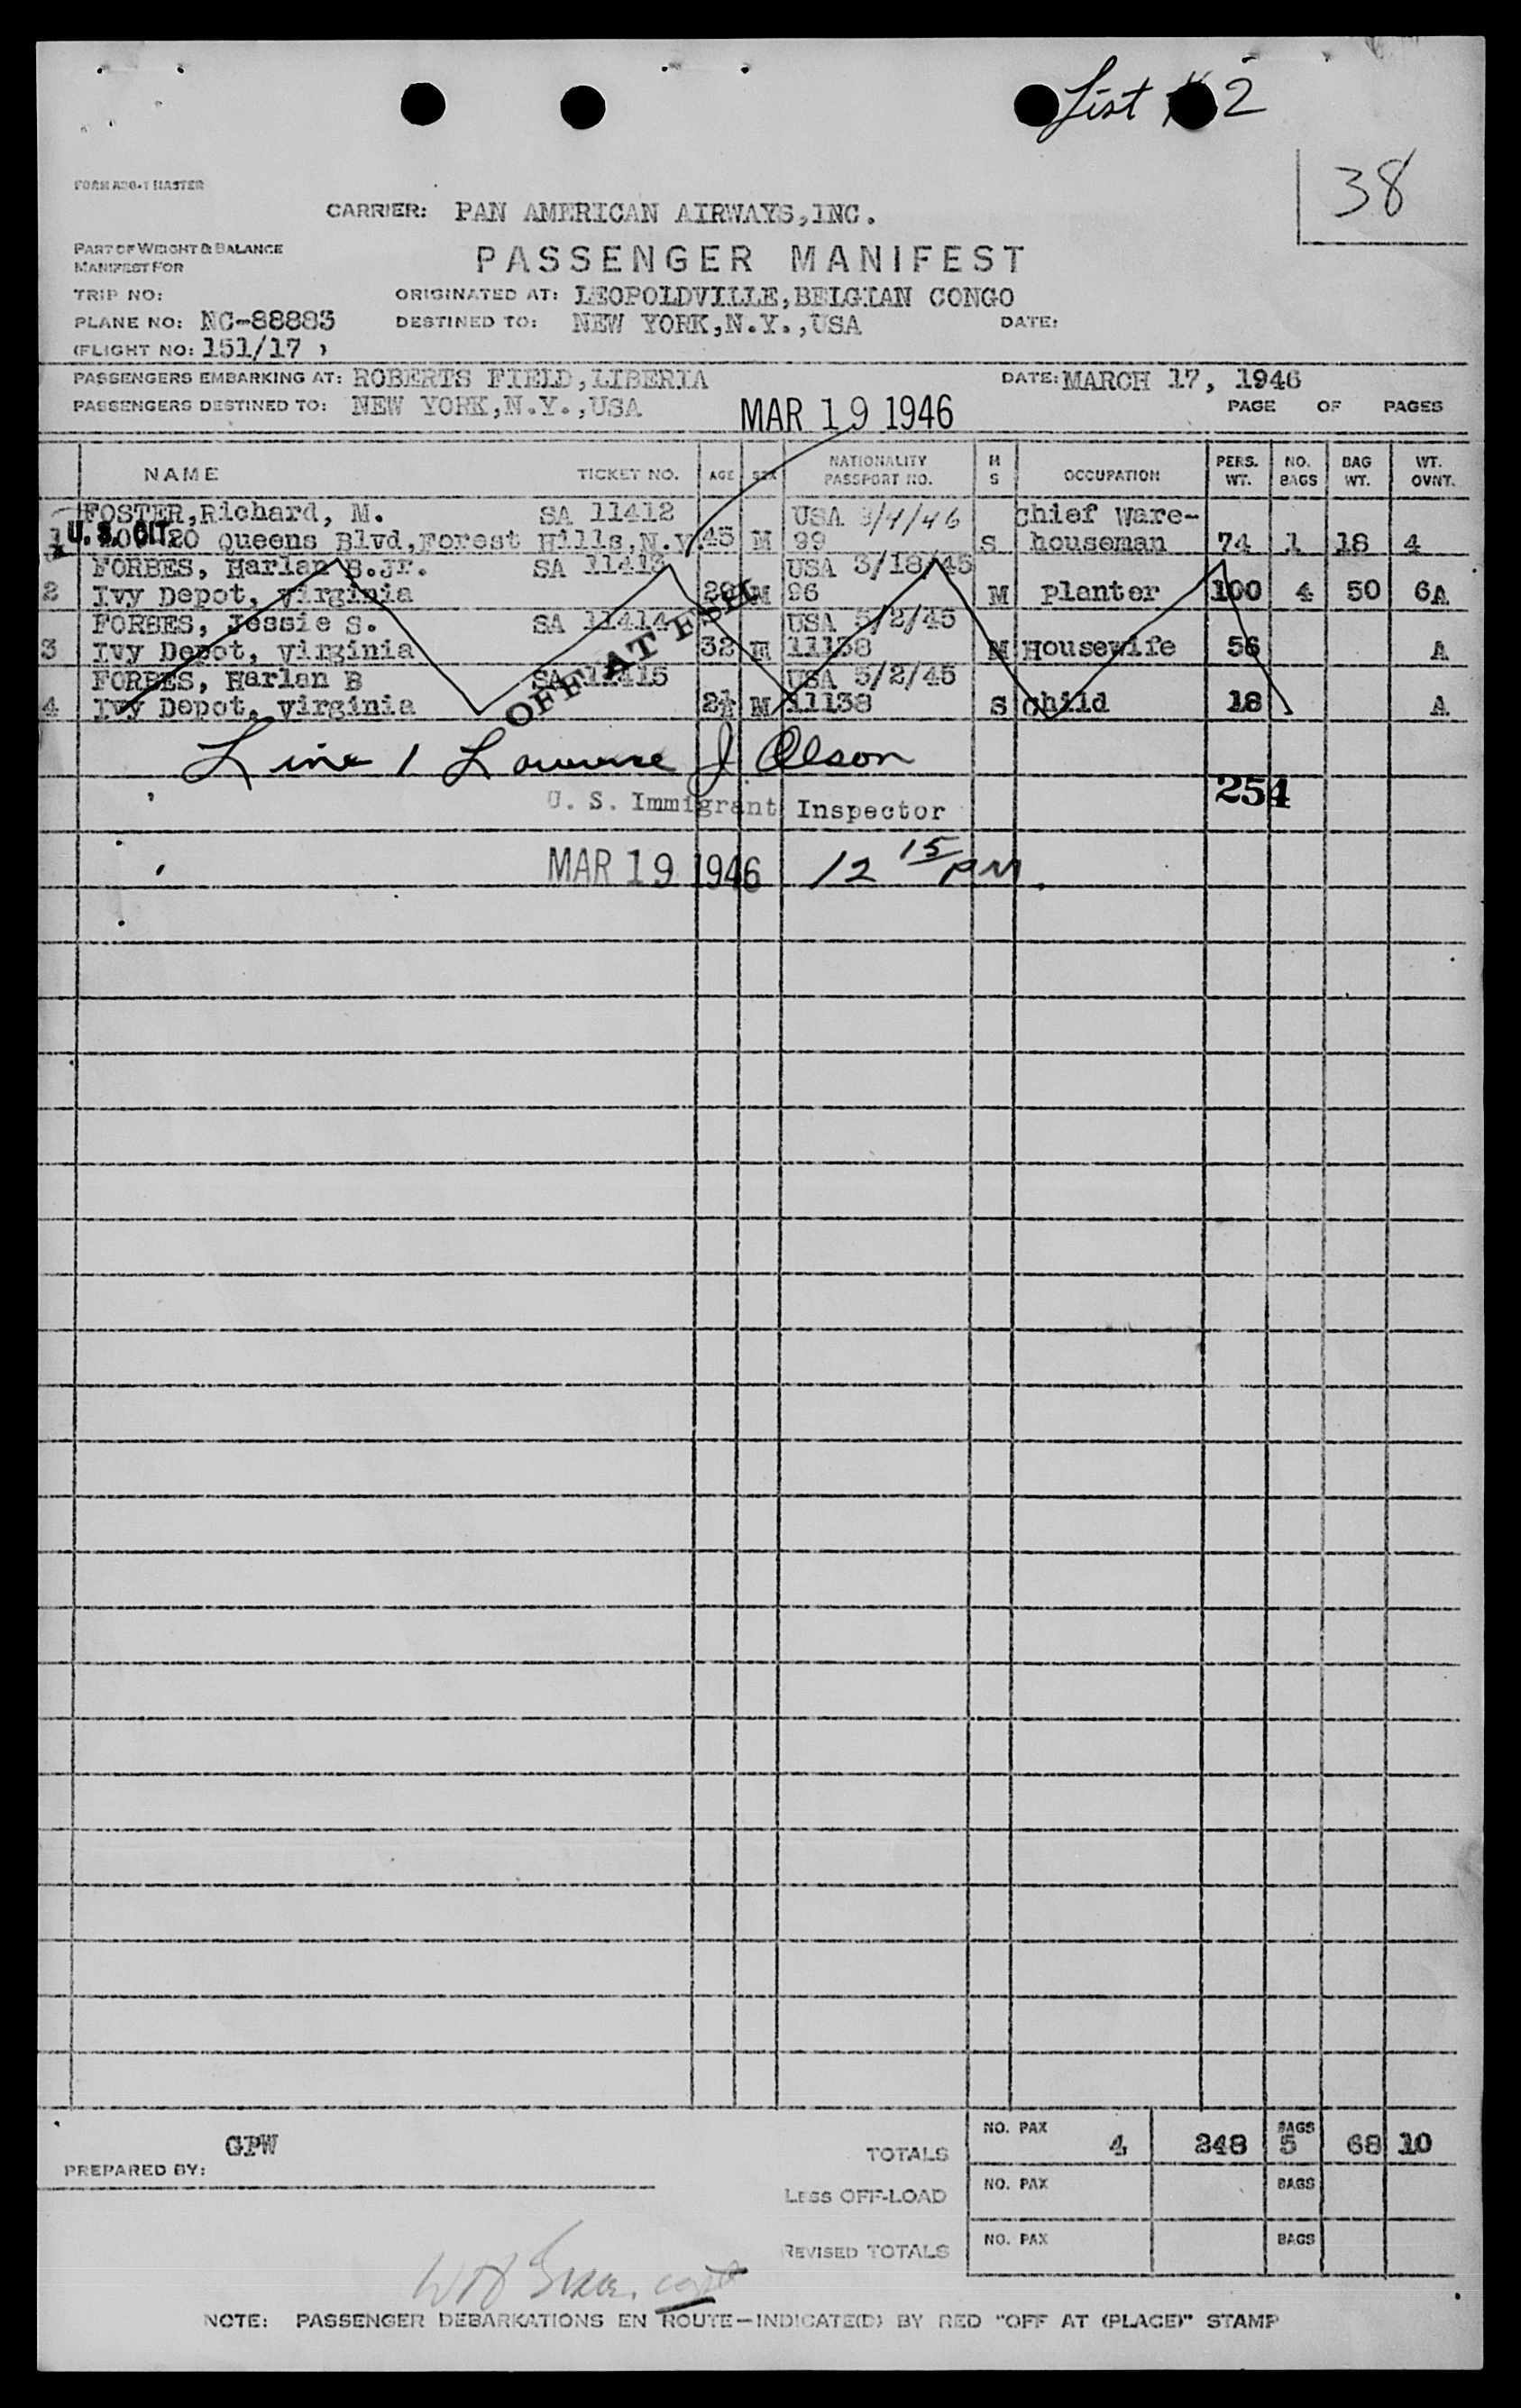 List # 2
38
FORM ADO-1 MASTER
CARRIER: PAN AMERICAN AIRWAYS,INC.
PART OF WEIGHT & BALANCE
MANIFEST FOR
PASSENGER MANIFEST
TRIP NO: ORIGINATED AT: LEOPOLDVILLE,BELGIAN CONGO
PLANE NO: NC-88883 DESTINED TO: NEW YORK,N.Y.,USA DATE:
(FLIGHT NO: 151/17 )
PASSENGERS EMBARKING AT: ROBERTS FIELD,LIBERIA DATE: MARCH 17, 1946
PASSENGERS DESTINED TO: NEW YORK,N.Y.,USA MAR 19 1946 PAGE OF PAGES
NAME TICKET NO. AGE SEX NATIONALITY PASSPORT NO. M S OCCUPATION PERS. WT. NO. BAGS BAG WT. WT. OVNT.
FOSTER,Richard, M. SA 11412 USA 3/4/46 Chief Ware-
1 U. S. CIT. 20 Queens Blvd,Forest Hills,N.Y. 45 M 99 S houseman 74 1 18 4
FORBES, Harlan B.Jr. SA 11413 USA 3/18/45
2 Ivy Depot, Virginia M 96 M Planter 100 4 50 6A
FORBES, Jessie S. SA 11414 USA 5/2/45
3 Ivy Depot, Virginia 32 11138 M Housewife 56 A
FORBES, Harlan B SA 11415 USA 5/2/45
4 Ivy Depot, Virginia 2½ M 11138 S Child 18 A
OFF AT
Line 1 Lawrence J Olson
254
U. S. Immigrant Inspector
MAR 19 1946 12 15 PM.
GPW
PREPARED BY:
TOTALS NO. PAX 4 248 BAGS 5 68 10
LESS OFF-LOAD NO. PAX BAGS
REVISED TOTALS NO. PAX BAGS
NOTE: PASSENGER DEBARKATIONS EN ROUTE—INDICATE(D) BY RED "OFF AT (PLACE)" STAMP